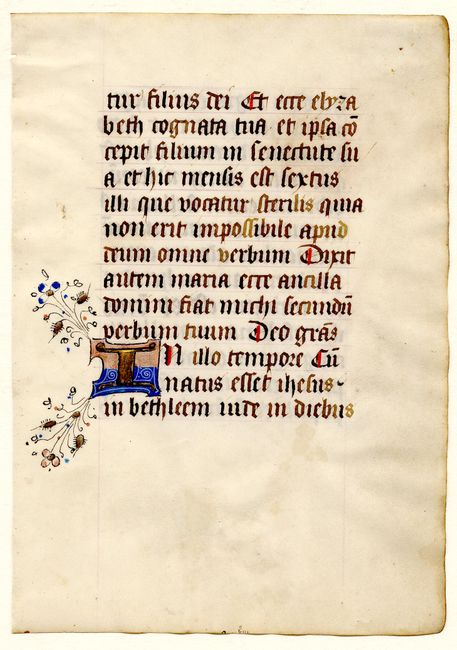 tur filius dei Et ecce elyza
beth cognata tua et ipsa cō
cepit filium in senectute su
a et hic mensis est sextus
illi que vocatur sterilis quia
non erit impossibile apud
deum omne verbum Dixit
autem maria ecce ancilla
domini fiat michi secundū
verbum tuum Deo grās
IN illo tempore Cū
natus esset ihesus
in bethleem iude in diebus